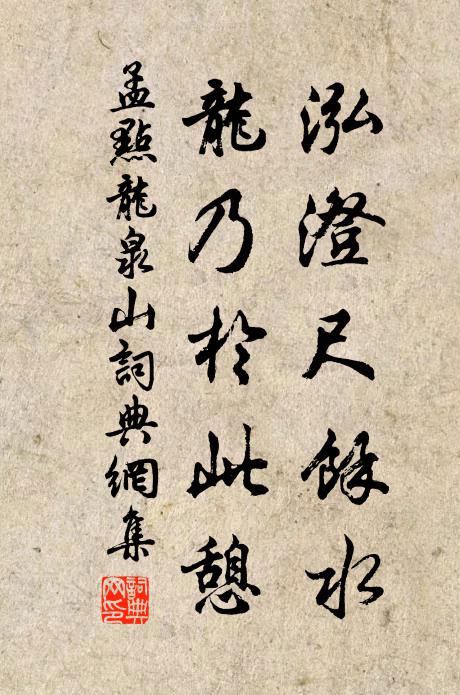 泓澄尺餘水
龍乃於此憩
孟點龍泉山詞典網集
詞典网印